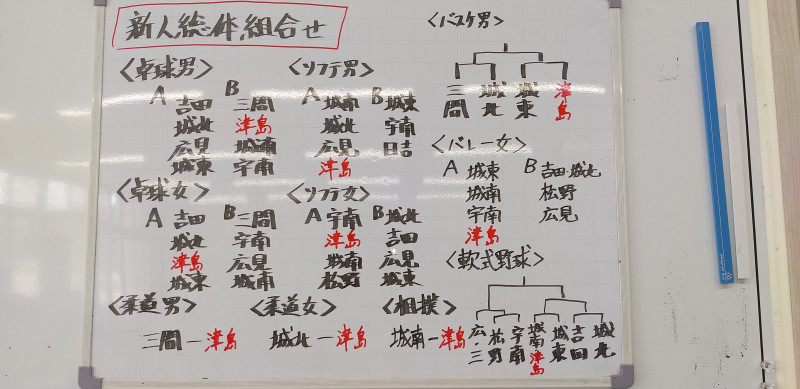 新人総体組合せ
<卓球男>
A 吉田 城北 広見 城東
B 三間 津島 城南 宇南
<ソフテ男>
A 城南 城北 広見 津島
B 城東 宇南 日吉
<バスケ男>
三間 城北 城東 津島
<バレー女>
A 城東 城南 宇南 津島
B 吉田・城北 松野 広見
<卓球女>
A 吉田 城北 津島 城東
B 三間 宇南 広見 城南
<ソフテ女>
A 宇南 津島 城南 松野
B 城北 吉田 広見 城東
<軟式野球>
広・三 松野 宇南 城南津島 城東 吉田 城北
<柔道男>
三間-津島
<柔道女>
城北-津島
<相撲>
城南-津島